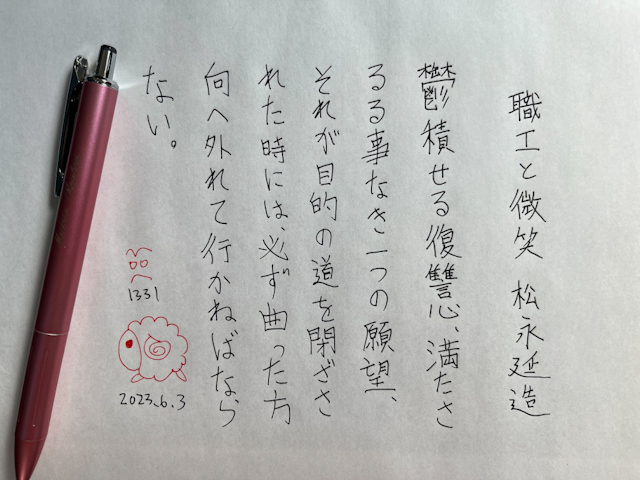 職工と微笑 松永延造
鬱積せる復讐心、満たさ
るる事なき一つの願望、
それが目的の道を閉ざさ
れた時には、必ず曲った方
向へ外れて行かねばなら
ない。
1331
2023.6.3